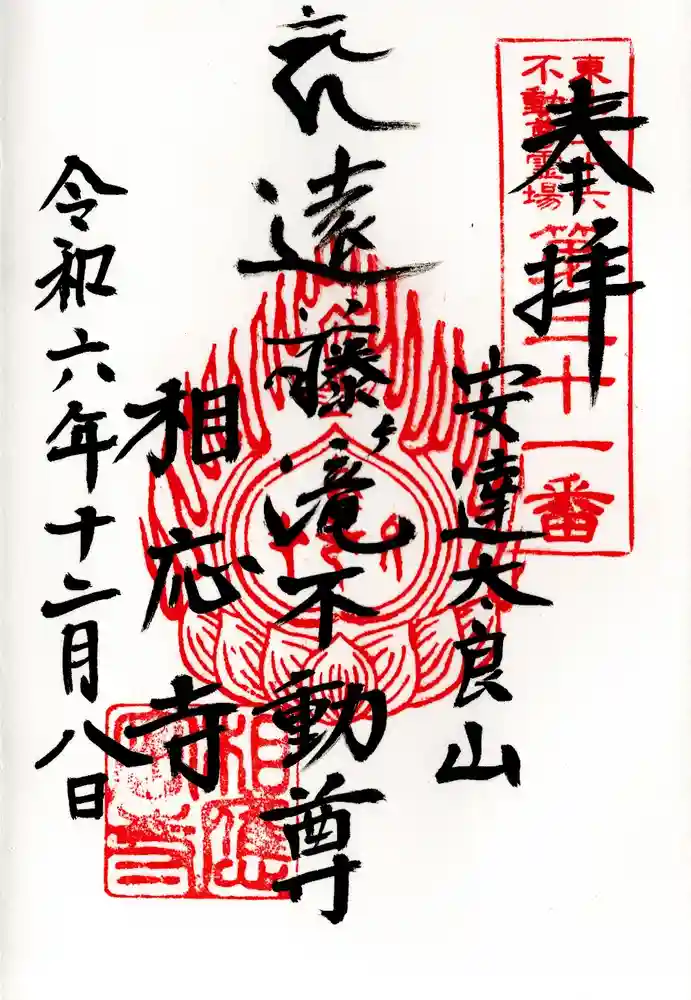 奉拝
東北三十六
不動尊霊場
第二十一番
安達太良山
遠藤ヶ滝不動尊
相応寺
令和六年十二月八日
相應